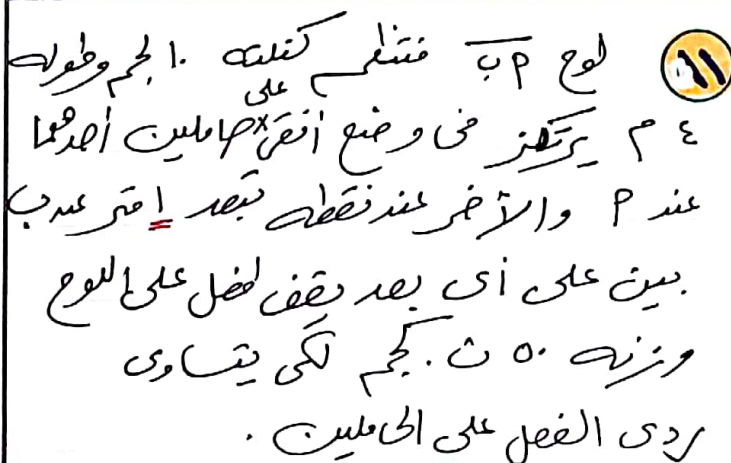 ١١ لوح م ب منتظم كتلته ١٠ كجم وطوله
٤ م يرتكز فى وضع أفقى على حاملين أحدهما
عند م والآخر عند نقطة تبعد ١ متر عن ب
بين على أى بعد يقف طفل على اللوح
وزنه ٥٠ ث.كجم لكى يتساوى
ردى الفعل على الحاملين.